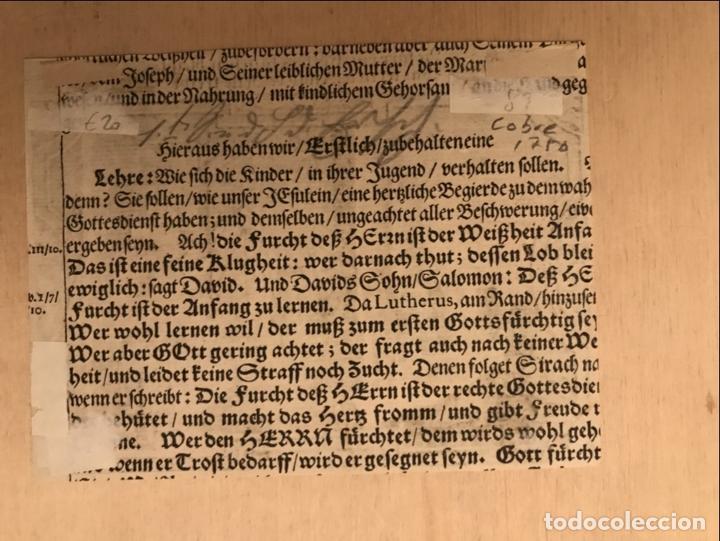 Weißheit / zubefördern: darneben aber / auch Seinem
Joseph / und Seiner leiblichen Mutter / der Mar
und in der Nahrung / mit kindlichem Gehorsan
geg
£20
Cobre
1780
Hieraus haben wir / Erstlich / zubehalten eine
Lehre: Wie sich die Kinder / in ihrer Jugend / verhalten sollen.
denn? Sie sollen / wie unser JEsulein / eine hertzliche Begierde zu dem wah
Gottesdienst haben; und demselben / ungeachtet aller Beschwerung / eive
ergeben seyn. Ach! die Furcht deß HErrn ist der Weißheit Anfa
/10.
Das ist eine feine Klugheit: wer darnach thut; dessen Lob blei
ewiglich: sagt David. Und Davids Sohn / Salomon: Deß HE
1/7/
Furcht ist der Anfang zu lernen. Da Lutherus, am Rand / hinzuset
10.
Wer wohl lernen wil / der muß zum ersten Gottsfürchtig sey
Wer aber GOtt gering achtet; der fragt auch nach keiner We
heit / und leidet keine Straff noch Zucht. Denen folget Sirach na
wenn er schreibt: Die Furcht deß HErrn ist der rechte Gottesdie
hütet / und macht das Hertz fromm / und gibt Freude
ne. Wer den HERRN fürchtet / dem wirds wohl geh
wenn er Trost bedarff / wird er gesegnet seyn. Gott fürcht
todocoleccion.net